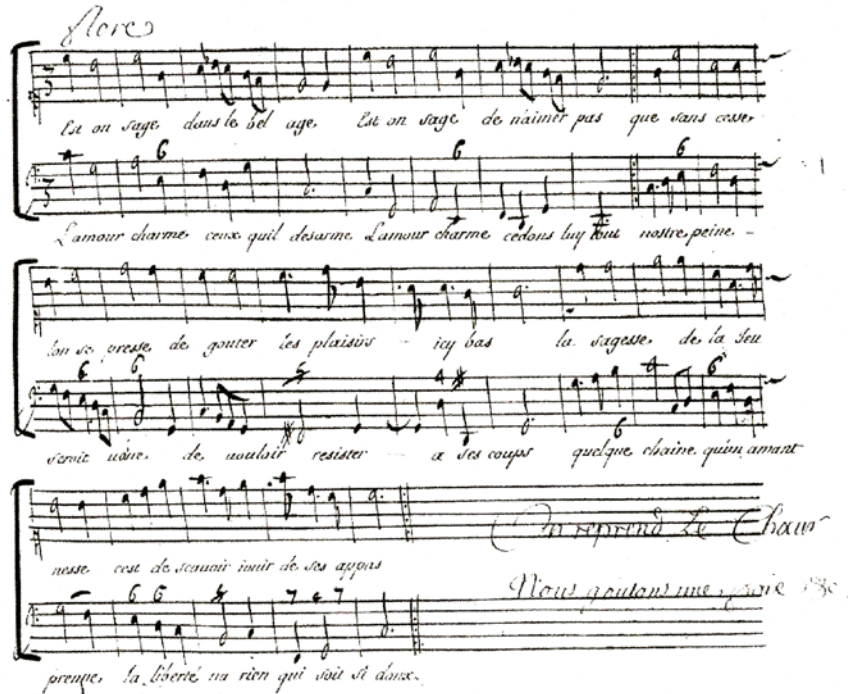 flore
Est on sage dans le bel age, Est on sage de n'aimer pas que sans cesse,
6 6 6
L'amour charme ceux quil desarme L'amour charme cedons luy tout nostre peine -
lon se presse de gouter les plaisirs - icy bas la sagesse de la Jeu
6 6 4 6 4 6
seroit vâne de vouloir resister - a ses coups quelque chaine qu'un amant
nesse cest de scavoir iouir de ses appas
On reprend Le Chœur
6 6 7 4 7
Nous goutons une paix
prenne, la liberté na rien qui soit si doux.